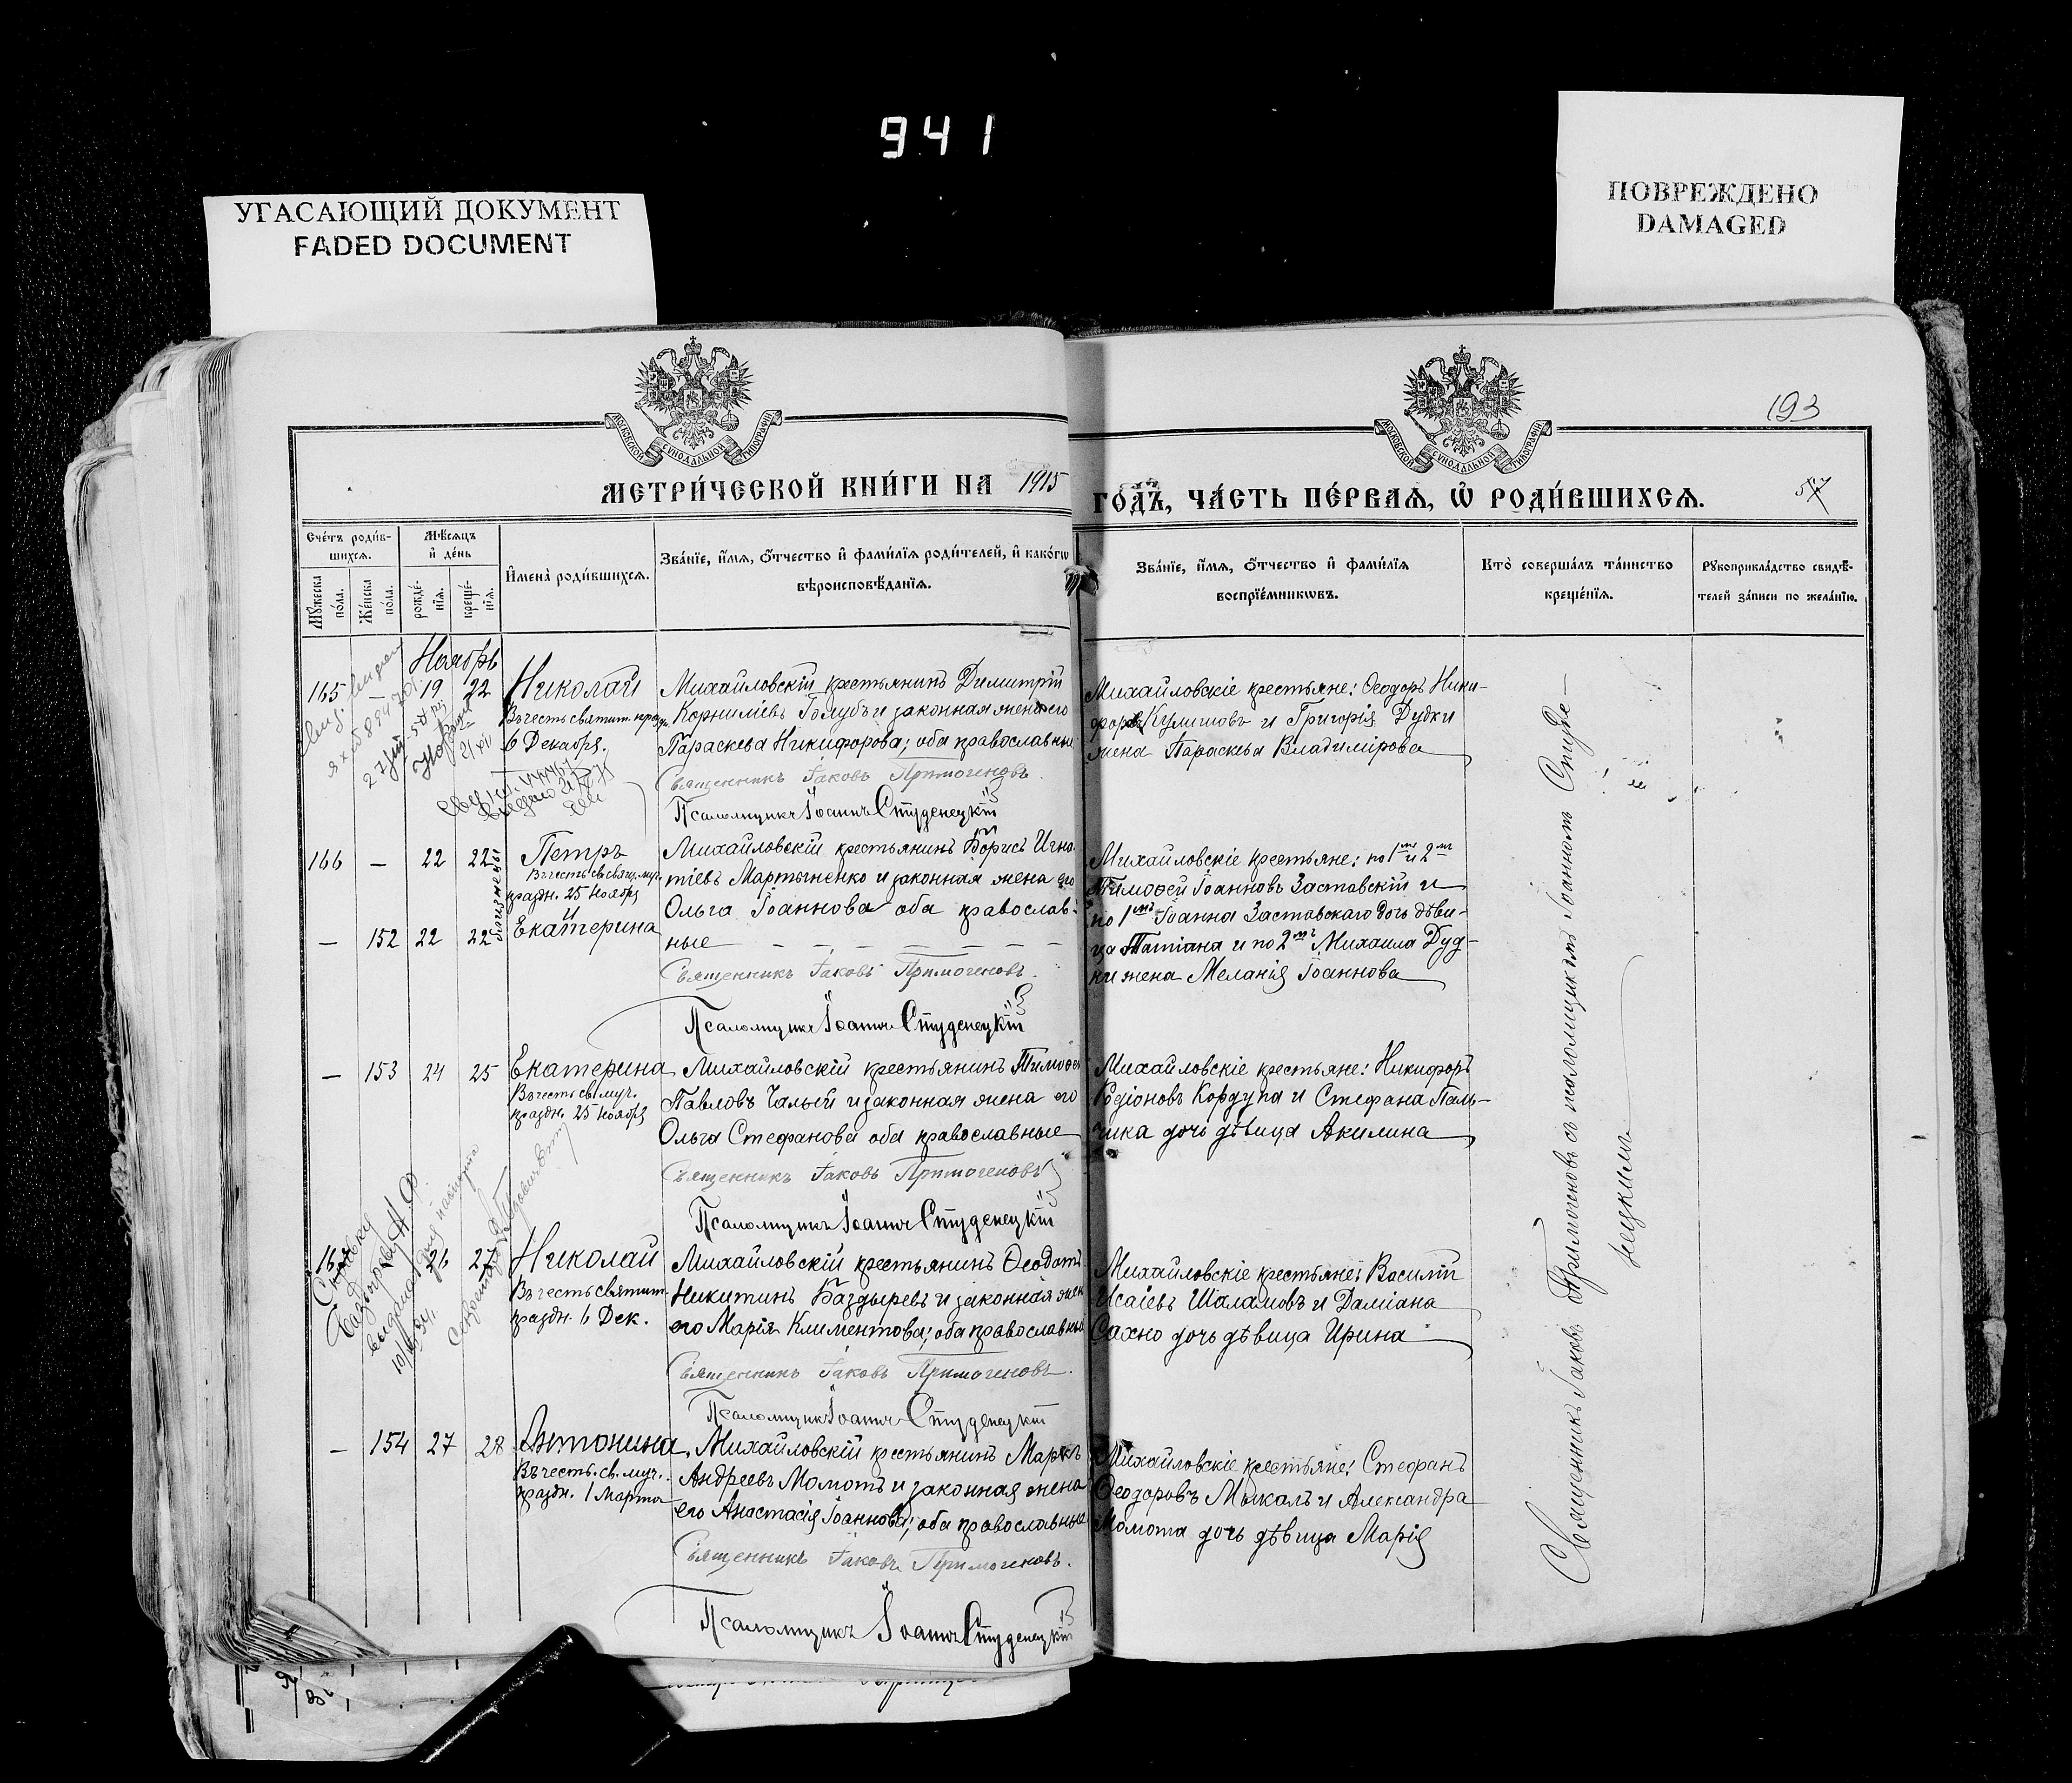 941
УГАСАЮЩИЙ ДОКУМЕНТ
FADED DOCUMENT
ПОВРЕЖДЕНО
DAMAGED
МОСКОВСКОЙ СѴНОДАЛЬНОЙ ТИПОГРАФІИ
МОСКОВСКОЙ СѴНОДАЛЬНОЙ ТИПОГРАФІИ
193
МЕТРИ́ЧЕСКОЙ КНИ́ГИ НА 1915
ГОДЪ, ЧА́СТЬ ПЕ́РВАѦ, Ѡ РОДИ́ВШИХСѦ.
57
Сче́тъ роди́в-
шихсѧ.
Мѣ́сѧцъ
и҆ де́нь
Мꙋ́жеска по́ла.
Же́нска по́ла.
рожде́-
нїѧ.
креще́-
нїѧ.
И҆мена̀ роди́вшихсѧ.
Зва́нїе, и҆́мѧ, ѻ҆́тчество и҆ фами́лїѧ роди́телей, и҆ како́гѡ
вѣроисповѣ́данїѧ.
Зва́нїе, и҆́мѧ, ѻ҆́тчество и҆ фами́лїѧ
воспрїе́мникѡвъ.
Кто̀ соверша́лъ та́инство
креще́нїѧ.
Рꙋкоприкла́дство свидѣ́-
телей за́писи по жела́нїю.
Ноябрь
165 — 19 22 Николай
Въ честь святит. празд.
6 Декабря.
Михайловскій крестьянинъ Димитрій
Корниліевъ Голубъ и законная жена его
Параскева Никифорова; оба православные
Священникъ Іаковъ Примогеновъ.
Псаломщикъ Іоаннъ Студенецкій
Михайловскіе крестьяне: Ѳеодоръ Ники-
форовъ Кулишовъ и Григорія Дудки
жена Параскева Владимірова
166 — 22 22 Петръ
Въ честь св. свящ. муч.
праздн. 25 Ноября
близнецы
— 152 22 22 Екатерина
Михайловскій крестьянинъ Борисъ Игна-
тіевъ Мартыненко и законная жена его
Ольга Іоаннова оба православ-
ные
Священникъ Іаковъ Примогеновъ.
Псаломщикъ Іоаннъ Студенецкій
Михайловскіе крестьяне: по 1му и 2му
Тимоѳей Іоанновъ Заставскій и
по 1му Іоанна Заставскаго дочь дѣви-
ца Татіана и по 2му Михаила Дуд-
ки жена Меланія Іоаннова
— 153 24 25 Екатерина
Въ честь св. муч.
праздн. 25 Ноября
Михайловскій крестьянинъ Тимоѳей
Павловъ Чалый и законная жена его
Ольга Стефанова оба православные
Священникъ Іаковъ Примогеновъ
Псаломщикъ Іоаннъ Студенецкій
Михайловскіе крестьяне: Никифоръ
Родіоновъ Кордупа и Стефана Паль-
чика дочь дѣвица Акилина
167 26 27 Николай
Въ честь святит.
праздн. 6 Дек.
Михайловскій крестьянинъ Ѳеодотъ
Никитинъ Баздыревъ и законная жена
его Марія Климентова; оба православные
Священникъ Іаковъ Примогеновъ.
Псаломщикъ Іоаннъ Студенецкій
Михайловскіе крестьяне: Василій
Исаіевъ Шаламовъ и Даміана
Сахно дочь дѣвица Ирина
— 154 27 28 Антонина
Въ честь св. муч.
праздн. 1 Марта
Михайловскій крестьянинъ Маркъ
Андреевъ Момотъ и законная жена
его Анастасія Іоаннова; оба православные
Священникъ Іаковъ Примогеновъ.
Псаломщикъ Іоаннъ Студенецкій
Михайловскіе крестьяне: Стефанъ
Ѳеодоровъ Мыкалъ и Александра
Момота дочь дѣвица Марія
Священникъ Іаковъ Примогеновъ съ псаломщикомъ Іоанномъ Студе-
нецкимъ